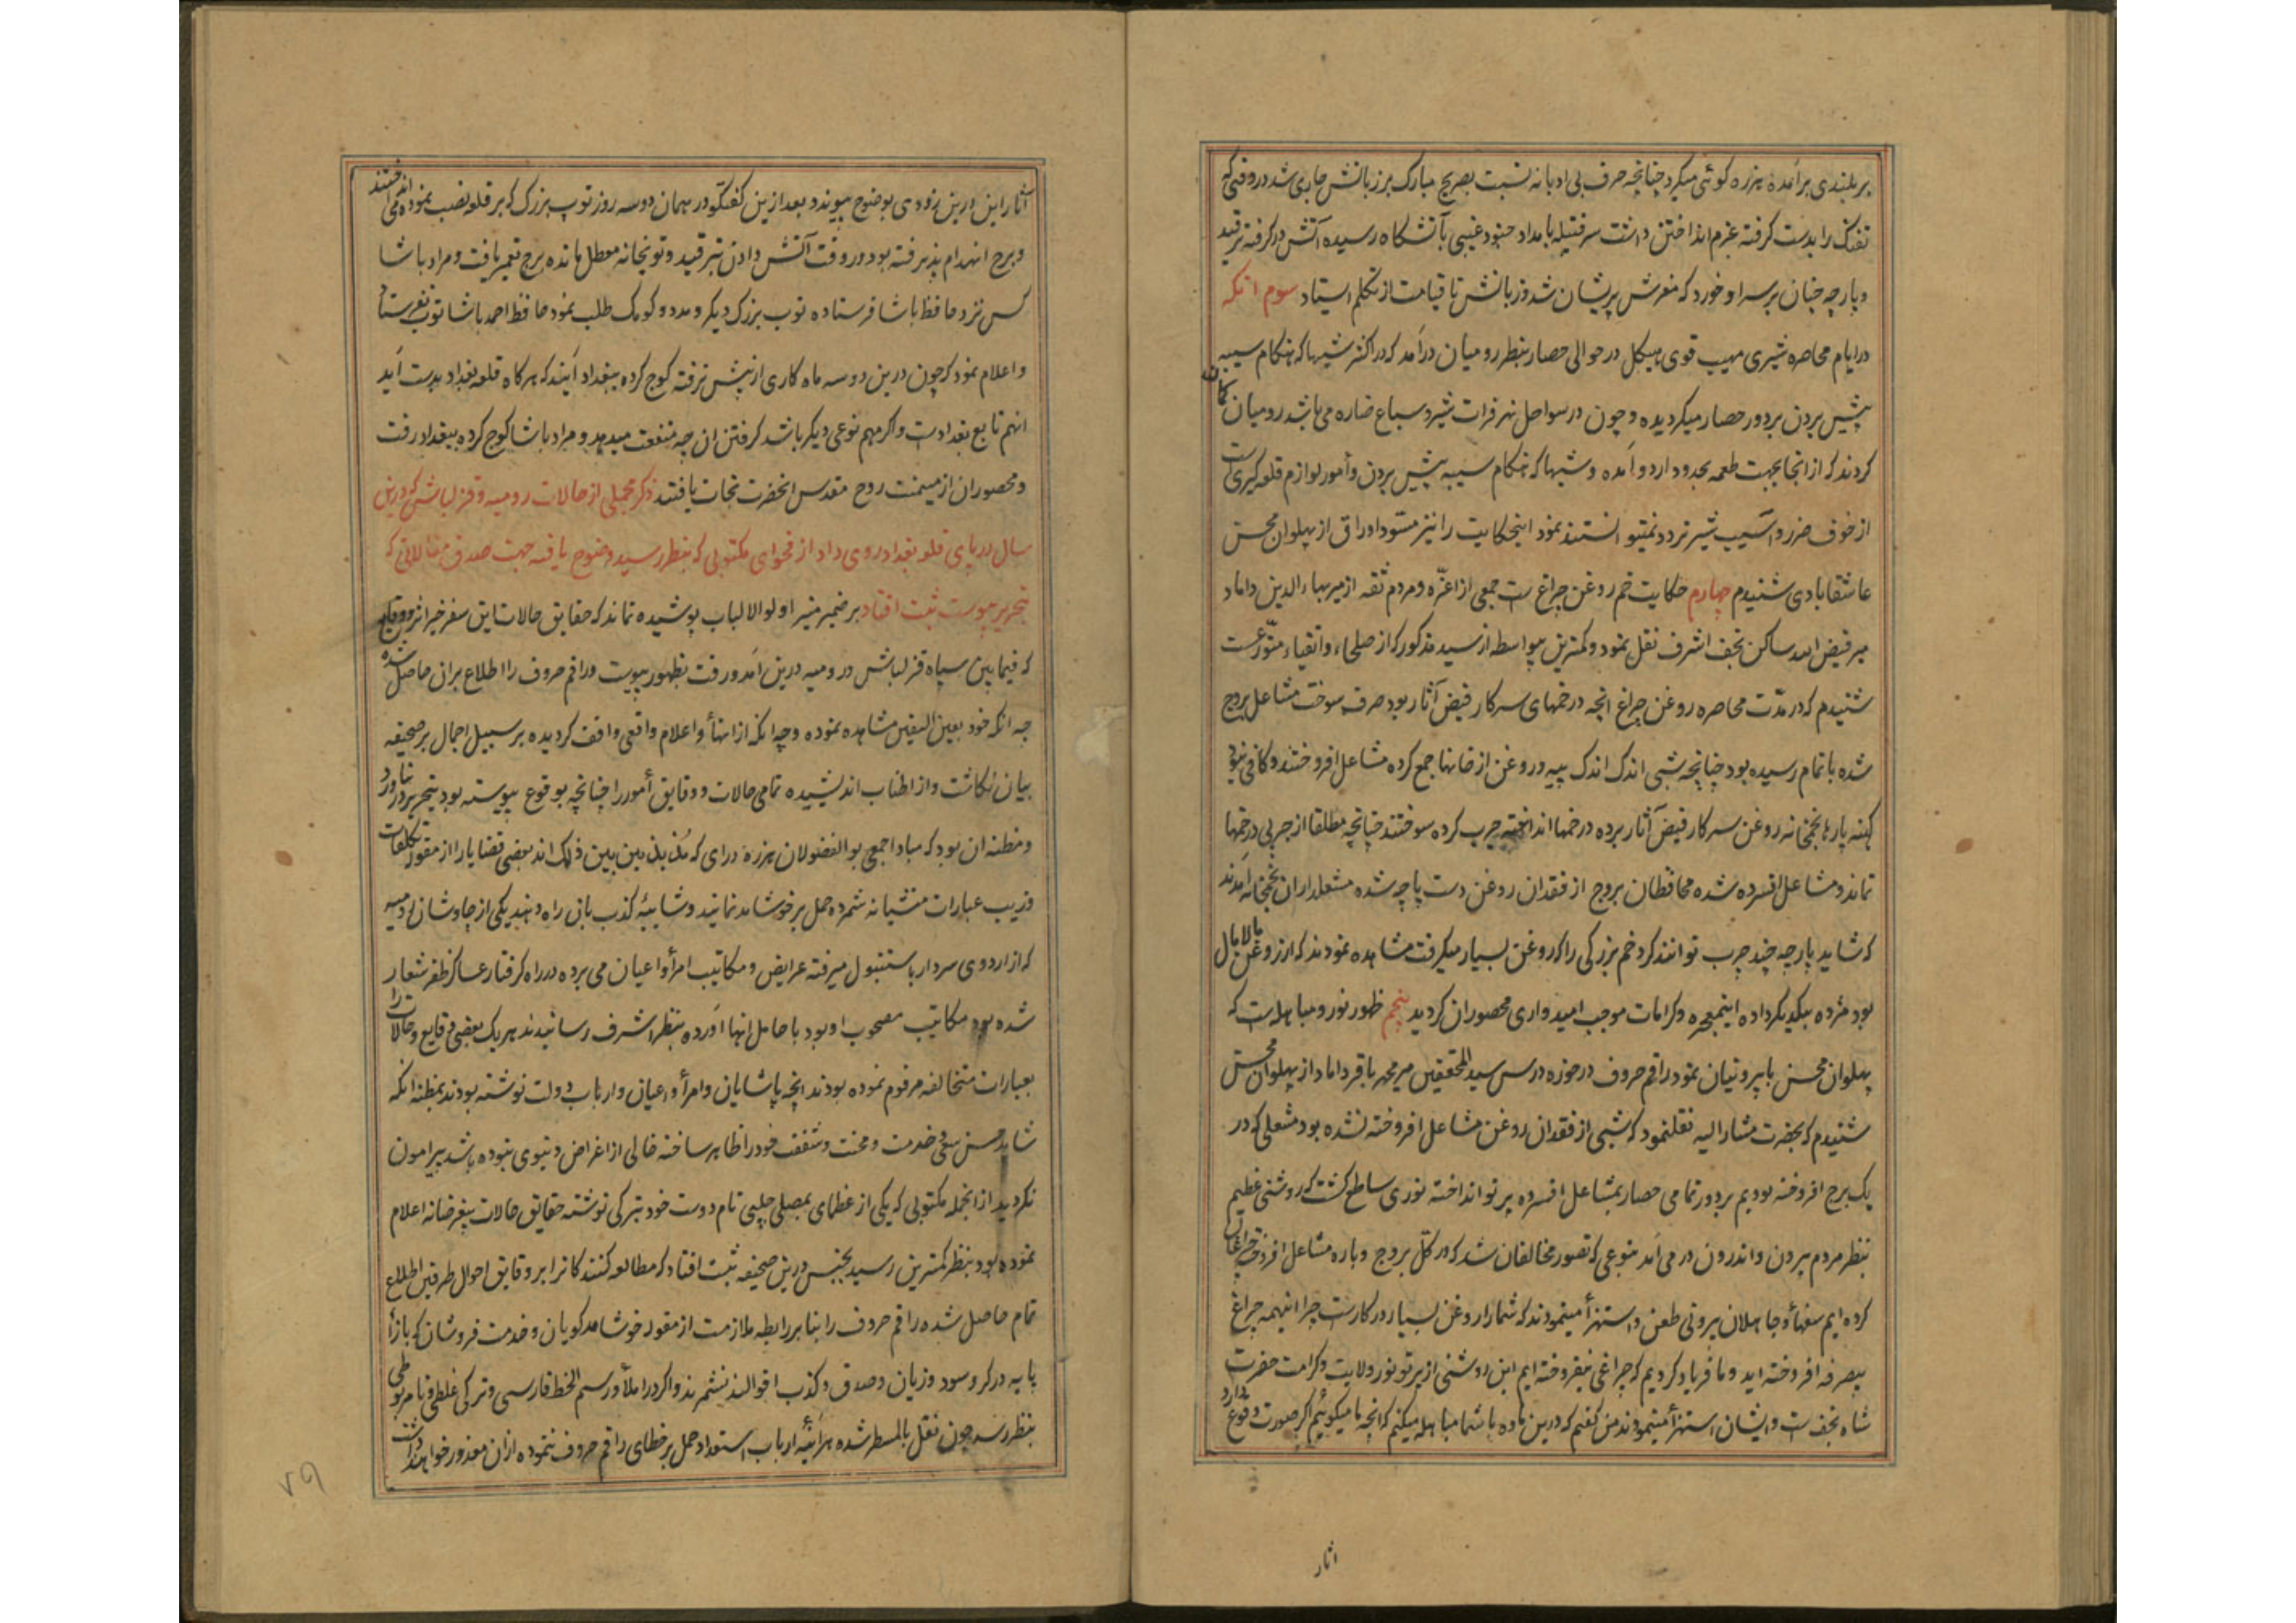 بر بلندی برآمده هرزه کوئی میکرد چنانچه حرف بی ادبانه نسبت بصریح مبارک بر زبانش جاری شد در وقتی که
تفنک را بدست کرفته عزم انداختن داشت سر فتیله بامداد جنود غیبی بآتشکاه رسیده آتش در کرفته ترقید
و پارچه چنان بر سر او خورد که مغزش پریشان شد و زبانش تا قیامت از تکلم استاد سوم انکه
در ایام محاصره شیری مهیب قوی هیکل در حوالی حصار بنظر رومیان درآمد که در اکثر شبها که هنکام سیبه
پیش بردن بر دور حصار میکردیده و چون در سواحل نهر فرات شیر و سباع ضاره می باشد رومیان کمان
کردند که از انجا بجهت طعمه بحدود اردو آمده و شبها که هنکام سیبه پیش بردن و امور لوازم قلعه کیری است
از خوف ضرر و آسیب شیر تردد نمیتوانستند نمود اینحکایت را نیز مسود اوراق از پهلوان محسن
عاشقابادی شنیدم چهارم حکایت خم روغن چراغ ست جمعی از اعزّه و مردم ثقه از میر بهاءالدین داماد
میر فیض الله ساکن نجف اشرف نقل نمود و کمترین بیواسطه از سید مذکور که از صلحاء و اتقیاء متورعست
شنیدم که در مدّت محاصره روغن چراغ انچه در خمهای سرکار فیض آثار بود صرف سوخت مشاعل بروج
شده باتمام رسیده بود چنانچه شبی اندک اندک پیه و روغن از خانها جمع کرده مشاعل افروختند و کافی نبود
کهنه پارها بخمخانه روغن سرکار فیض آثار برده در خمها انداخته چرب کرده سوختند چنانچه مطلقا از چربی در خمها
نماند و مشاعل افسرده شده محافظان بروج از فقدان روغن دست پاچه شده مشعلداران بخمخانه آمدند
که شاید پارچه چند چرب توانند کرد خم بزرکی را که روغن بسیار میکرفت مشاهده نمودند که از روغن مالامال
بود مژده بیکدیکر داده اینمعجزه و کرامات موجب امیدواری محصوران کردید پنجم ظهور نور و مباهله است که
پهلوان محسن با بیرونیان نمود راقم حروف در حوزه درس سید المحققین میر محمد باقر داماد از پهلوان محسن
شنیدم که بحضرت مشار الیه نقلنمود که شبی از فقدان روغن مشاعل افروخته نشده بود مشعلی که در
یک برج افروخته بودیم بر دور تمامی حصار بمشاعل افسرده پرتو انداخته نوری ساطع کشت که روشنی عظیم
بنظر مردم بیرون و اندرون در می آمد بنوعی که تصور مخالفان شد که در کلّ بروج و باره مشاعل افروخته چراغان
کرده ایم سفها و جاهلان بیرونی طعن و استهزأ مینمودند که شما را روغن بسیار در کار است چرا اینهمه چراغ
بیصرفه افروخته اید و ما فریاد کردیم که چراغی نیفروخته ایم این روشنی از پرتو نور ولایت و کرامت حضرت
شاه نجف ست و ایشان استهزأ مینمودند من کفتم که درین ماده با شما مباهله میکنم که انچه ما میکوئیم اکر صورت وقوع دارد
اثار
آثار این درین زودی بوضوح پیوندد و بعد ازین کفتکو در همان دو سه روز توپ بزرک که بر قلعه نصب نموده می انداختند
و برج انهدام پذیرفته بود در وقت آتش دادن بترقید و توپخانه معطل مانده برج تعمیر یافت و مراد پاشا
کس نزد حافظ پاشا فرستاده توپ بزرک دیکر و مدد و کومک طلب نمود حافظ احمد پاشا توپ نفرستاد
و اعلام نمود که چون درین دو سه ماه کاری از پیش نرفته کوچ کرده ببغداد آیند که هرکاه قلعه بغداد بدست آید
انهم تابع بغداد است و اکر مهم نوعی دیکر باشد کرفتن ان چه منفعت میدهد و مراد پاشا کوچ کرده ببغداد رفت
و محصوران از میمنت روح مقدس انحضرت نجات یافتند ذکر مجملی از حالات رومیه و قزلباش که درین
سال در پای قلعه بغداد روی داد از فحوای مکتوبی که بنظر رسید وضوح یافته جهت صدق مقالاتی که
بتحریر پیوست ثبت افتاد بر ضمیر منیر اولو الالباب پوشیده نماند که حقایق حالات این سفر خیر اثر و وقایع
که فیما بین سپاه قزلباش و رومیه درین آمد و رفت بظهور پیوست و راقم حروف را اطلاع بران حاصل شده
چه انکه خود بعین الیقین مشاهده نموده و چه انکه از انهأ و اعلام واقعی واقف کردیده بر سبیل اجمال بر صحیفه
بیان نکاشت و از اطناب اندیشیده تمامی حالات و دقایق امور را چنانچه بوقوع پیوسته بود بتحریر در نیاورد
و مظنه ان بود که مبادا جمعی بوالفضولان هرزه درای که مذبذبین بین ذلک اند بعضی قضایا را از مقوله تکلفات
و زیب عبارات منشیانه شمرده حمل بر خوشامد نمایند و شایبهٔ کذب بان راه دهند یکی از چاوشان رومیه
که از اردوی سردار باستنبول میرفته عرایض و مکاتیب امرأ و اعیان می برده در راه کرفتار عساکر ظفر شعار
شده بود مکاتیب مصحوب او بود با حامل انها آورده بنظر اشرف رسانیدند هر یک بعضی وقایع و حالات را
بعبارات متخالفه مرقوم نموده بودند انچه پاشایان و امرأ و اعیان و ارباب دولت نوشته بودند بمظنه انکه
شاید حسن سعی و خدمت و محنت و شفقت خود را ظاهر ساخته خالی از اغراض دنیوی نبوده باشد پیرامون
نکردید از انجمله مکتوبی که یکی از عظمای بمصلی چلبی نام دوست خود بترکی نوشته حقایق حالات بیغرضانه اعلام
نموده بود بنظر کمترین رسید بجنس درین صحیفه ثبت افتاد که مطالعه کنندکانرا بر وقایق احوال طرفین اطلاع
تمام حاصل شده راقم حروف را بنا بر رابطه ملازمت از مقوله خوشامدکویان و خدمت فروشان که بازأ
پایه در کرو سود و زیان و صدق و کذب اقوالند نشمرند و اکر در املأ و رسم الخط فارسی و ترکی غلطی و نامربوطی
بنظر رسد چون نقل بالمسطر شده هرآینه ارباب استعداد حمل بر خطای راقم حروف ننموده ازان معذور خواهند داشت
۷۹